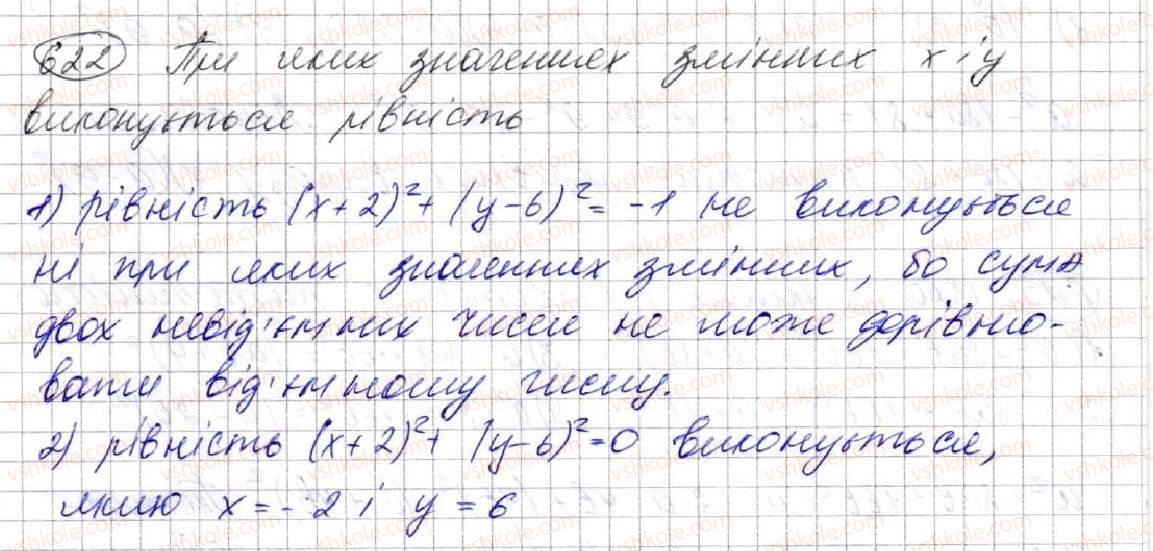 622 При яких значеннях змінних x і y
виконується рівність
1) рівність (x+2)²+(y-6)²=-1 не виконується
ні при яких значеннях змінних, бо сума
двох невід'ємних чисел не може дорівню-
вати від'ємному числу.
2) рівність (x+2)²+(y-6)²=0 виконується,
якщо x=-2 і y=6